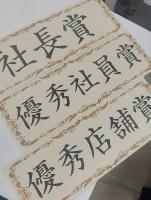 社長賞
優秀社員賞
優秀店舗賞